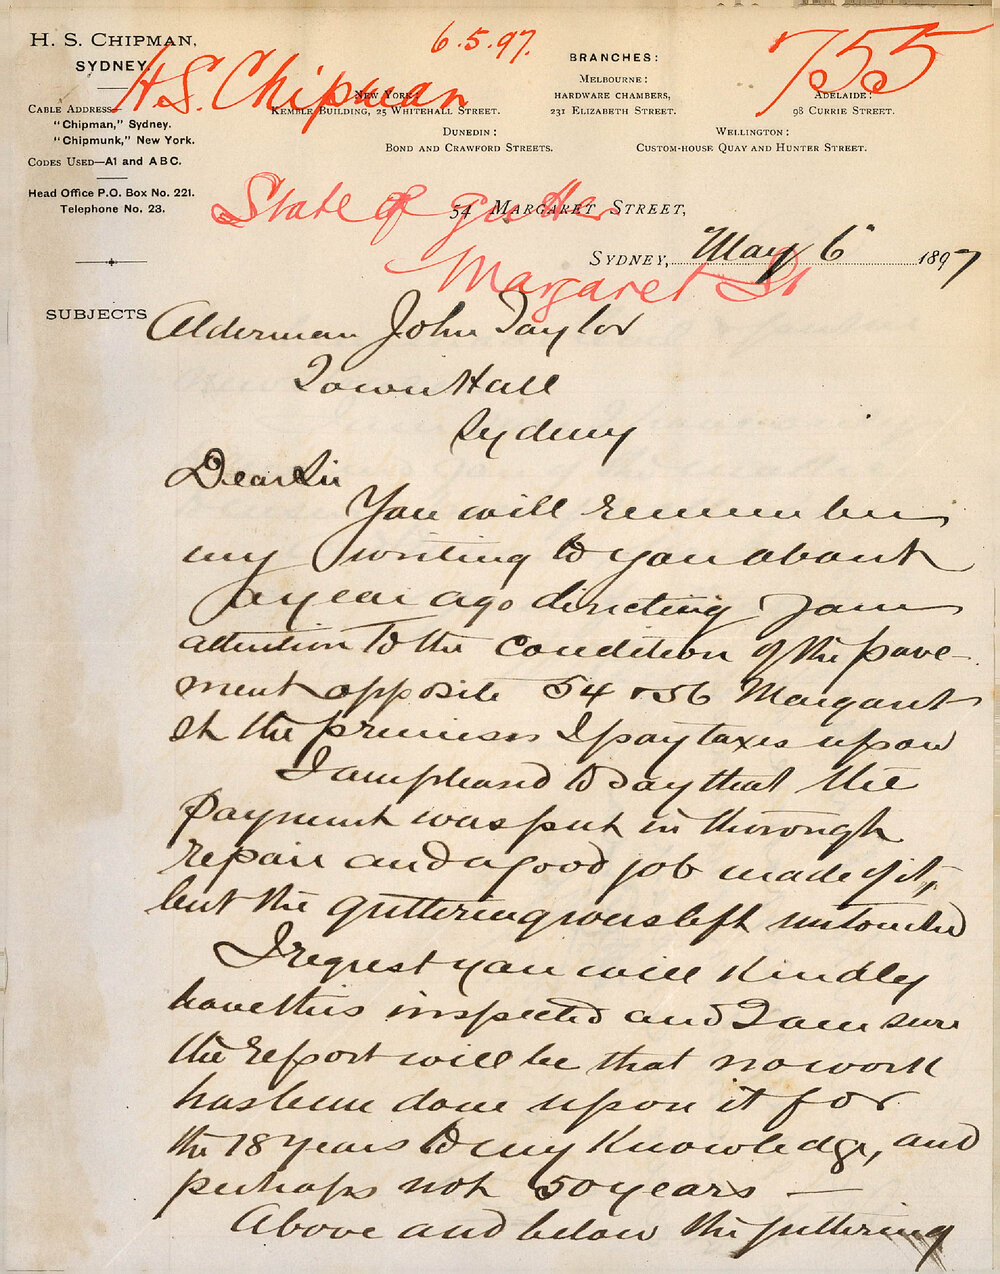 H. S. CHIPMAN,
SYDNEY.
6.5.97.
755
H S. Chipman
BRANCHES:
NEW YORK:
KEMBLE BUILDING, 25 WHITEHALL STREET.
MELBOURNE:
HARDWARE CHAMBERS,
231 ELIZABETH STREET.
ADELAIDE:
98 CURRIE STREET.
DUNEDIN:
BOND AND CRAWFORD STREETS.
WELLINGTON:
CUSTOM-HOUSE QUAY AND HUNTER STREET.
CABLE ADDRESS—
"Chipman," Sydney.
"Chipmunk," New York.
CODES USED—A1 and A B C.
Head Office P.O. Box No. 221.
Telephone No. 23.
State of gutter
Margaret St
54 MARGARET STREET,
SYDNEY, May 6" 1897
SUBJECTS
Alderman John Taylor
Town Hall
Sydney
Dear Sir
You will remember
my writing to you about
a year ago directing your
attention to the condition of the pave-
ment opposite 54 & 56 Margaret
St the premises I pay taxes upon
I am pleased to say that the
payment was put in thorough
repair and a good job made of it,
but the guttering was left untouched
I regest you will kindly
have this inspected and I am sure
the report will be that no work
has been done upon it for
the 18 years to my knowledge, and
perhaps not 50 years —
Above and below the guttering